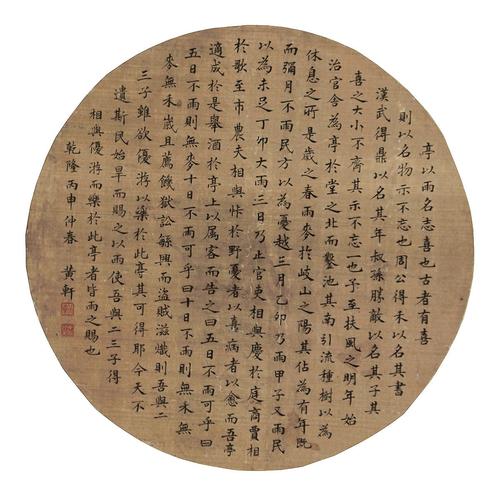 亭以雨名志喜也古者有喜
則以名物示不忘也周公得禾以名其書
漢武得鼎以名其年叔孫勝敵以名其子其
喜之大小不齊其示不忘一也予至扶風之明年始
治官舍為亭於堂之北而鑿池其南引流種樹以為
休息之所是歲之春雨麥於岐山之陽其占為有年既
而彌月不雨民方以為憂越三月乙卯乃雨甲子又雨民
以為未足丁卯大雨三日乃止官吏相與慶於庭商賈相
於歌至市農夫相與忭於野憂者以喜病者以愈而吾亭
適成於是舉酒於亭上以属客而告之曰五日不雨可乎曰
五日不雨則無麥十日不雨可乎曰十日不雨則無禾無
麥無禾歲且薦饑獄訟繁興而盜賊滋熾則吾與二
三子雖欲優游以樂於此亭其可得耶今天不
遺斯民始旱而賜之以雨使吾與二三子得
相與優游而樂於此亭者皆雨之賜也
乾隆丙申仲春 黃軒